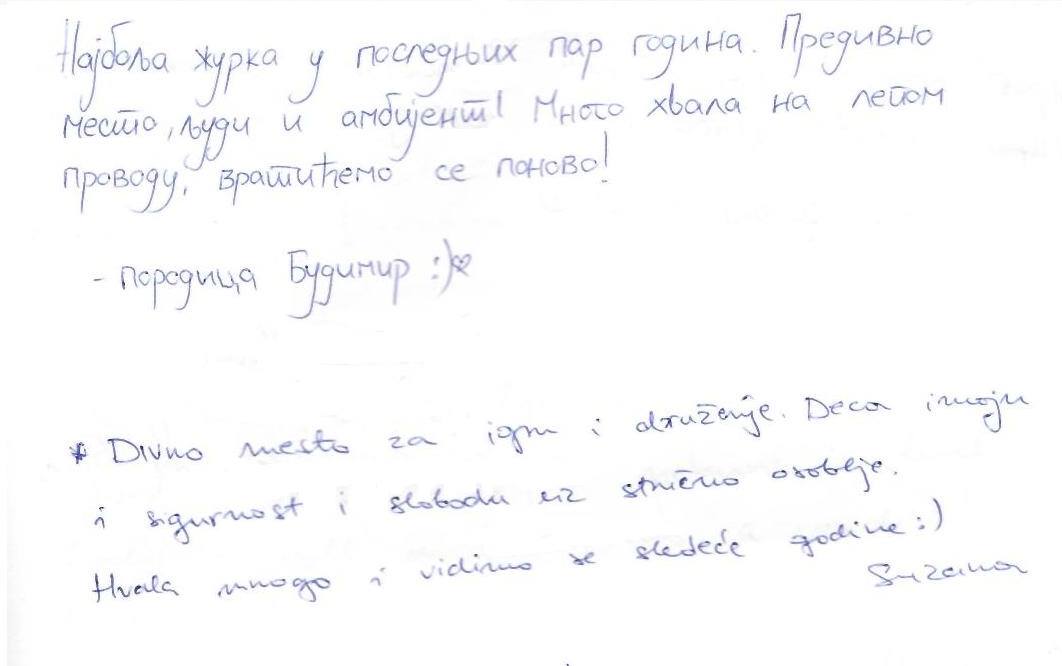 Најбоља журка у последњих пар година. Предивно
место, људи и амбијент! Много хвала на лепом
проводу, вратићемо се поново!
- породица Будимир :)♡
* Divno mesto za igru i druženje. Deca imaju
i sigurnost i slobodu uz stručno osoblje.
Hvala mnogo i vidimo se sledeće godine :)
Suzana